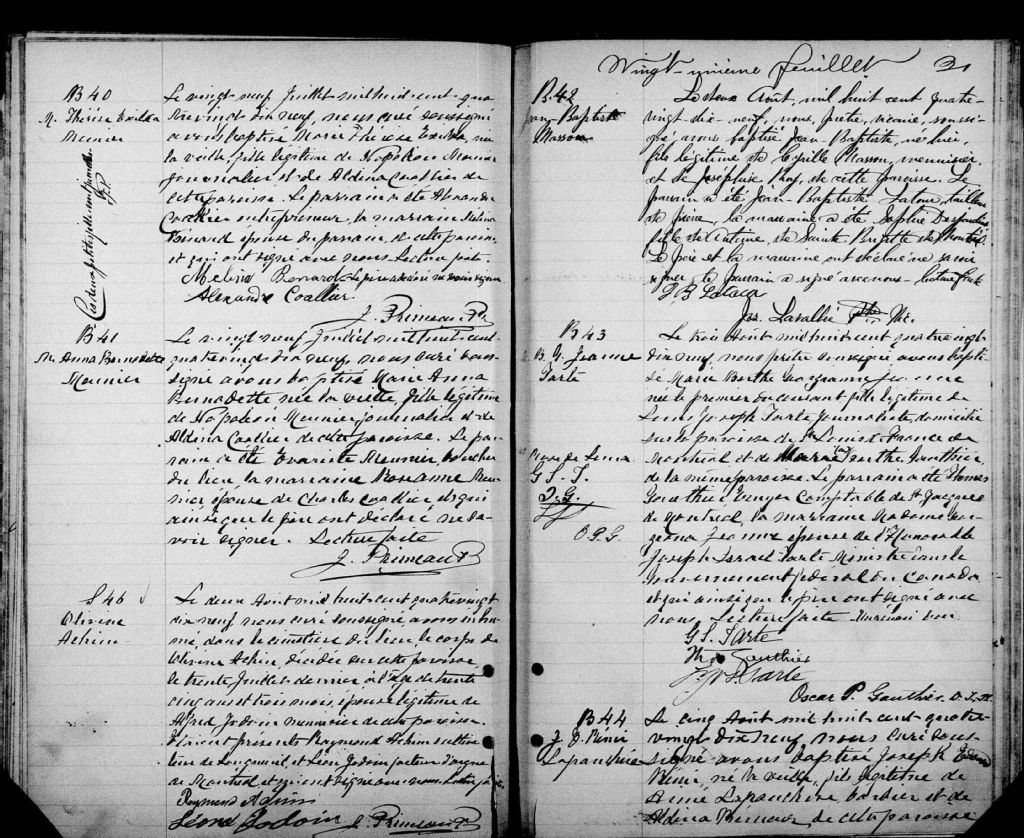 B 40
M. Thérèse Exilda
Meunier
Ces deux petites filles sont jumelles
J.P.
Le vingt neuf Juillet mil huit cent qua
tre vingt dix neuf, nous curé soussigné
avons baptisé Marie Thérèse Exilda, née
la veille, fille légitime de Napoléon Meunier
journalier et de Aldina Coallier de
cette paroisse. Le parrain a été Alexandre
Coallier entrepreneur, la marraine Melina
Benard épouse du parrain, de cette paroisse,
et qui ont signé avec nous. Lecture faite.
Melina Benard Le père a déclaré ne savoir signer
Alexandre Coallier.
J. Primeau Ptr
B 41
M. Anna Bernadette
Meunier
Le vingt neuf Juillet mil huit cent
quatre vingt dix neuf, nous curé sous-
signé avons baptisé Marie Anna
Bernadette née la veille, fille légitime
de Napoléon Meunier journalier et de
Aldina Coallier de cette paroisse. Le par-
rain a été Evariste Meunier, boucher
du lieu, la marraine Rosanna Meu-
nier épouse de Charles Coallier et qui
ainsi que le père ont déclaré ne sa-
voir signer. Lecture faite
J. Primeau Ptr
S 46
Olivine
Achim
Le deux Août mil huit cent quatre vingt
dix neuf nous curé soussigné avons inhu-
mé dans le cimetière du lieu, le corps de
Olivine Achim, décédée sur cette paroisse,
le trente Juillet dernier à l'âge de trente
cinq ans et trois mois, épouse légitime de
Alfred Jodoin menuisier de cette paroisse.
Etaient présents Raymond Achim cultiva-
teur de Longueuil et Léon Jodoin facteur d'orgue
de Montréal et qui ont signé avec nous. Lecture faite.
Raymond Achim
Léon Jodoin J. Primeau Ptr
Vingt-unième feuillet 21
B. 42
Jean Baptiste
Masson
Le deux Août, mil huit cent quatre-
vingt-dix-neuf, nous, prêtre, vicaire, soussi-
gné avons baptisé Jean Baptiste, né hier,
fils légitime de Cyrille Masson, menuisier,
et de Joséphine Roy, de cette paroisse. Le
parrain a été Jean-Baptiste Latour, tailleur
de pierre, la marraine a été Sophie Desjardins
fille de Antoine, de Sainte Brigitte de Montréal.
Le père et la marraine ont déclaré ne savoir
signer le parrain a signé avec nous. Lecture faite
J B Latour
Jos. Lavallée Ptre Vic.
B 43
B. G. Jeanne
Tarte
G S. T.
J. G.
O. P. G.
Le trois Août mil huit cent quatre vingt
dix neuf, nous prêtre soussigné avons bapti-
sé Marie Berthe Georgianna Jeanne
née le premier du courant fille légitime de
Louis Joseph Tarte Journaliste, domicilié
sur la paroisse de St Louis de France de
Montréal et de Marie Berthe Gauthier
de la même paroisse. Le parrain a été Thomas
Gauthier Ecuyer Comptable de St Jacques
de Montréal, la marraine Madame Geor-
giana épouse de l'Honorable
Joseph Israel Tarte Ministre dans le
Gouvernement fédéral du Canada
et qui ainsi que le père ont signé avec
nous. Lecture faite
G S. Tarte
Thos Gauthier
L. J. Tarte
Oscar P. Gauthier
B 44
J. E. Rémi
Lapanchire
Le cinq Août mil huit cent quatre-
vingt dix neuf nous curé sous-
signé avons baptisé Joseph
Rémi né la veille, fils légitime de
Aimé barbier et de
Aldina de cette paroisse